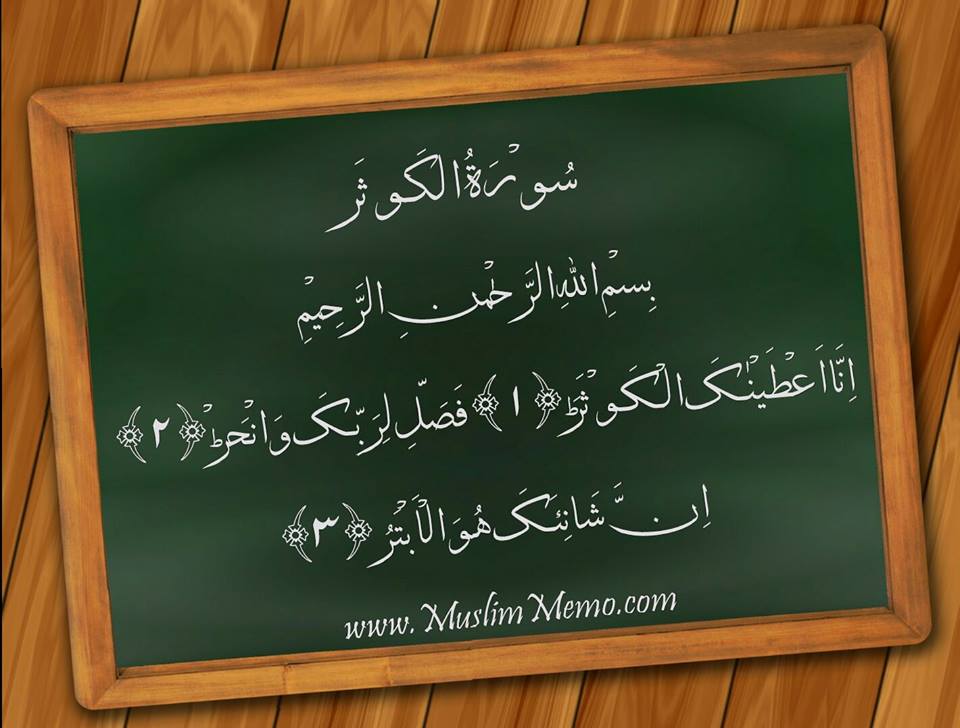 سُوْرَةُ الْكَوثَر
بِسْمِ اللهِ الرَّحْمٰنِ الرَّحِيْمِ
اِنَّا اَعْطَيْنٰكَ الْكَوْثَرَؕ ﴿۱﴾ فَصَلِّ لِرَبِّكَ وَانْحَرْؕ ﴿۲﴾
اِنَّ شَانِئَكَ هُوَ الْاَبْتَرُ ﴿۳﴾
www.MuslimMemo.com